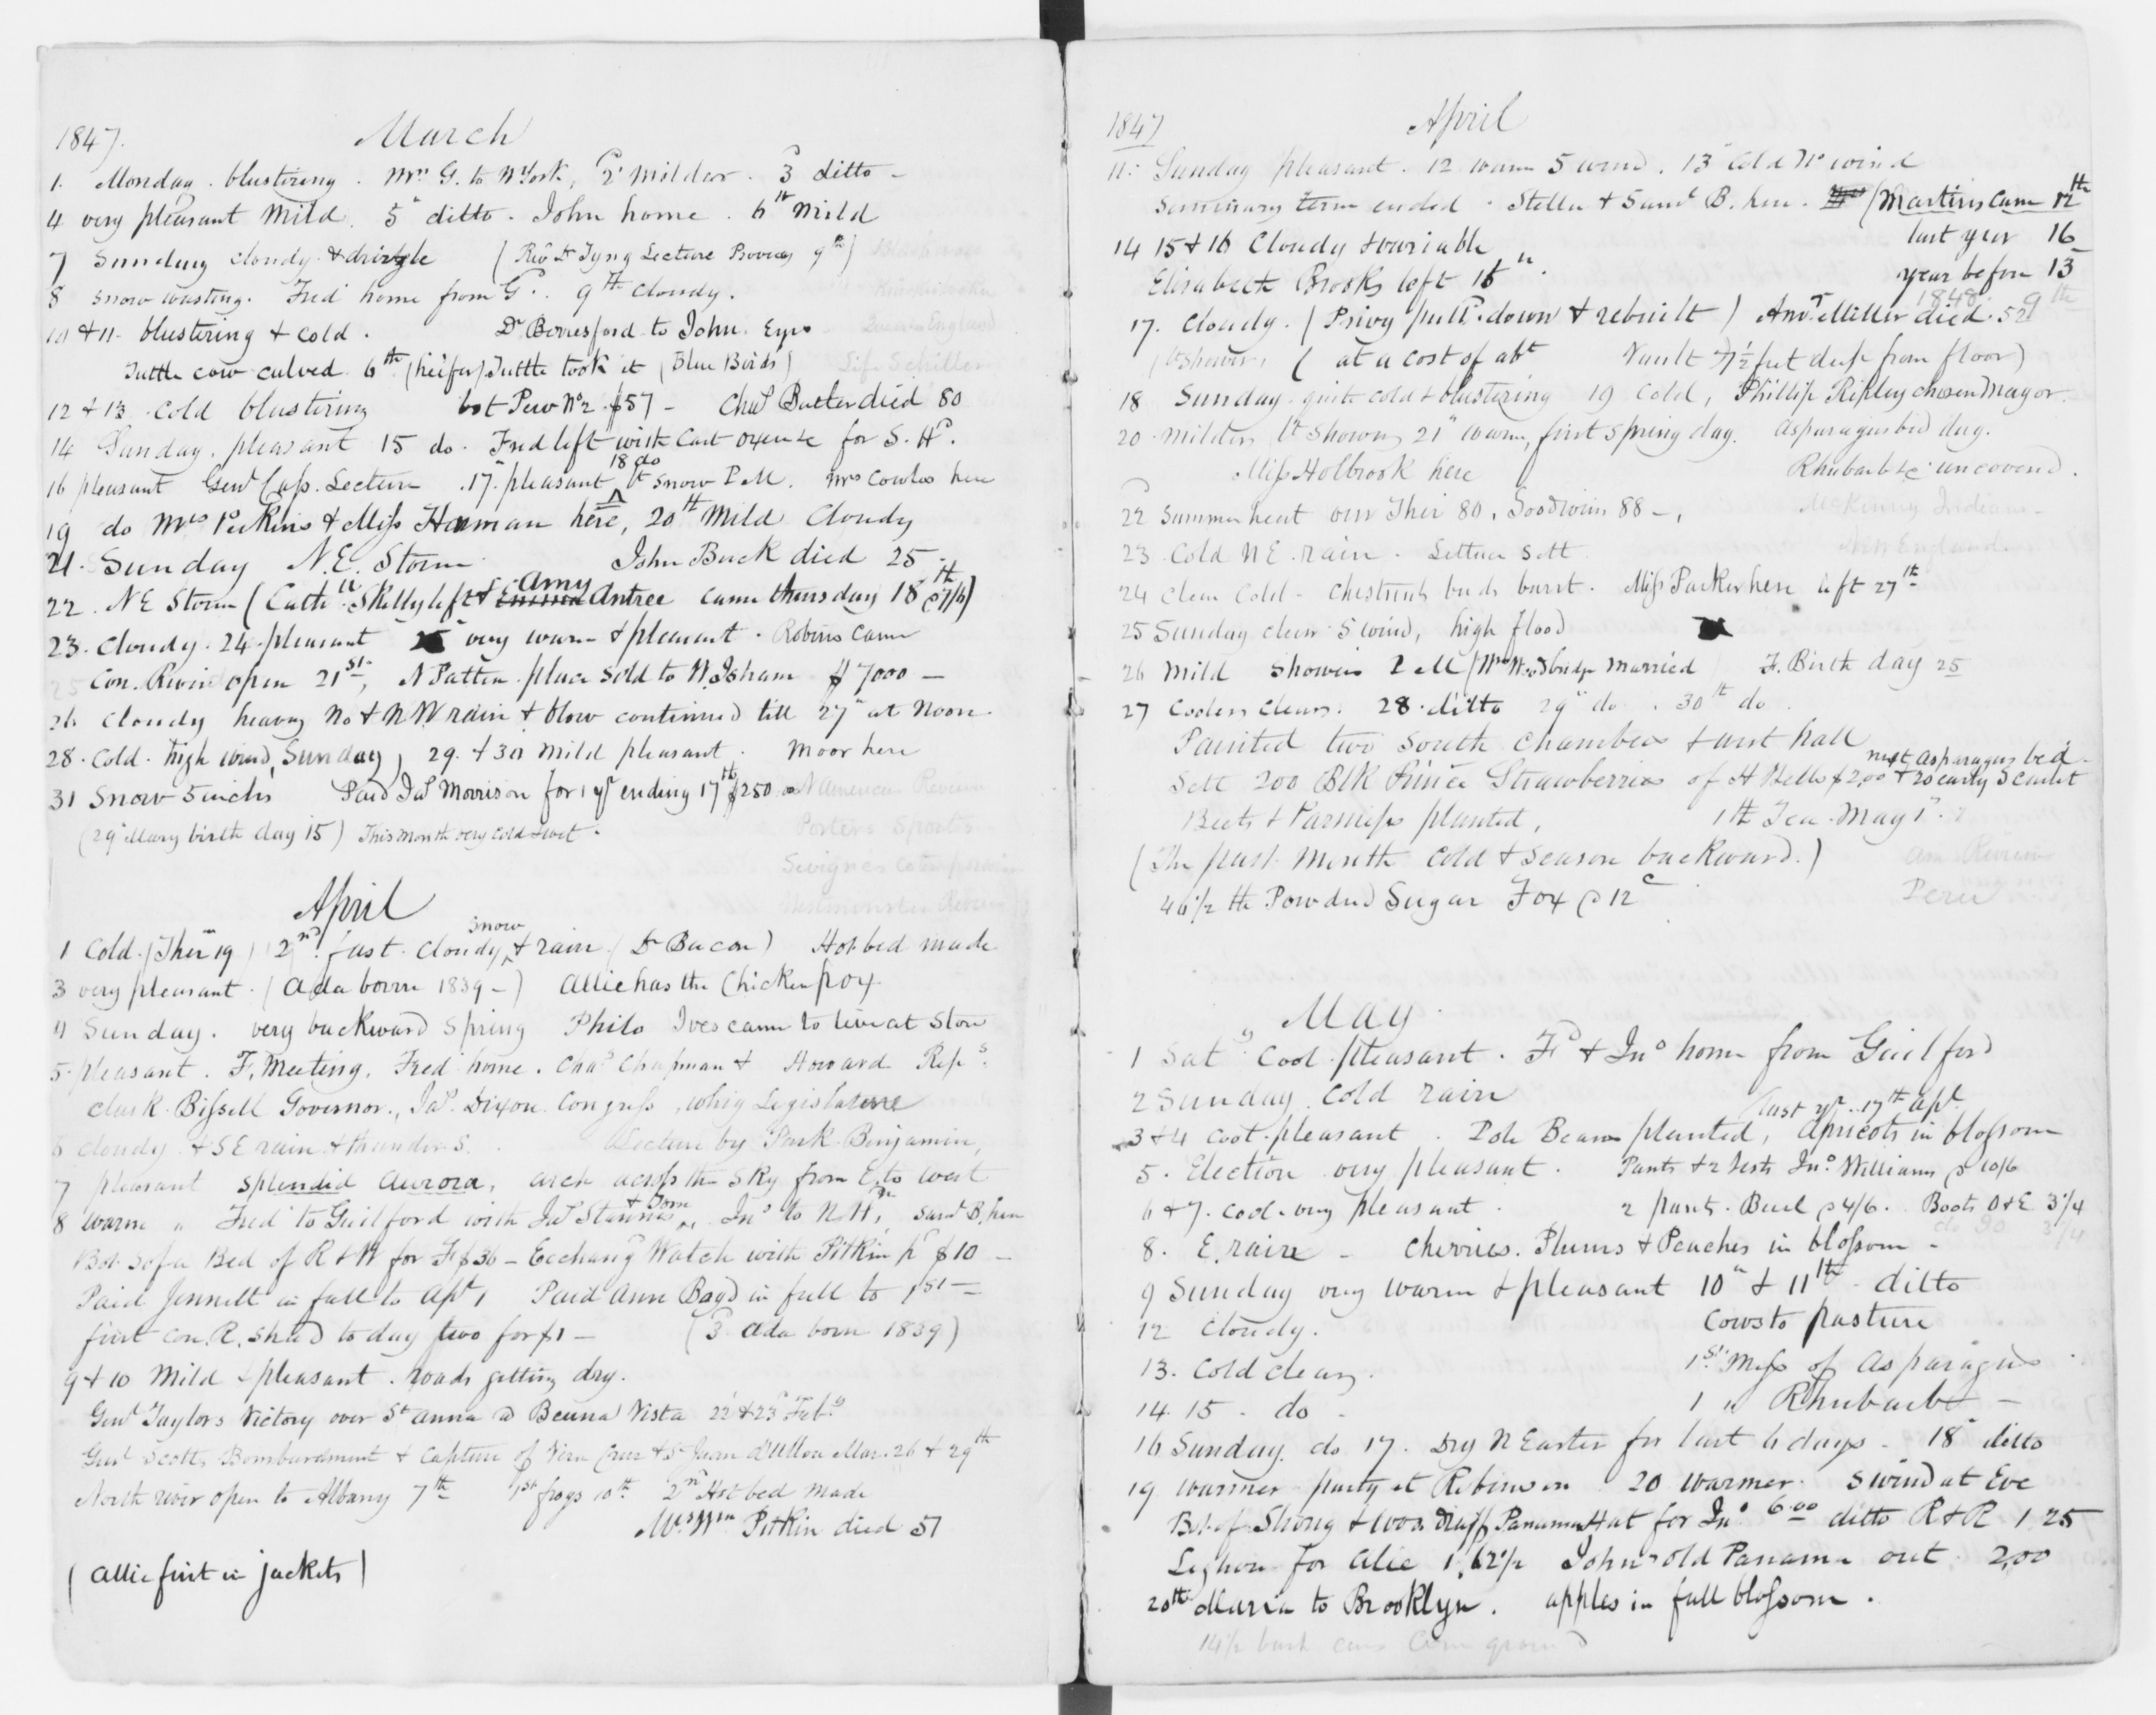 1847. March
1. Monday. blustering. Mrs G. to N York, 2d milder. 3d ditto -
4 very pleasant mild. 5" ditto. John home. 6th mild
7 Sunday cloudy & drizzle (Rev Dr Tyng Lecture 9th)
8 snow wasting. Fred home from G. 9th cloudy.
10 & 11 blustering & cold. Dr Berresford to John. Eyes
Tuttle cow calved 6th (heifer) Tuttle took it (Blue Birds) Life Schiller
12 & 13 cold blustering bot Pew No 2 $57 - Chas died 80
14 Sunday, pleasant 15 do. Fred left with Cart oxen &c for S. Hd.
16 pleasant Genl Cass. Lecture. 17" pleasant 18 do lt snow P.M. Mrs Cowles here
19 do Mrs Perkins & Miss here, 20th Mild Cloudy
21. Sunday N.E. Storm John Buck died 25
22. NE Storm (Cathne Skelly left & Amy Antree came thursday 18th @7/6)
23. Cloudy. 24. pleasant very warm & pleasant. Robins came
25 Con. River open 21st, N Patten place sold to W. Isham $7000 -
26 cloudy heavy No & N W rain & blow continued till 27" at Noon.
28. Cold. high wind, Sunday, 29. & 30 mild pleasant. Moor here
31 Snow 5 inches Paid Jas Morrison for 1 yr ending 17th $250.00 N American Review
(29" Mary birth day 15) This month very cold & wet. Porters Sports
April
1 Cold. (Ther 19) 2nd. fast. cloudy, snow & rain (Dr Bacon) Hot bed made
3 very pleasant. (Ada born 1839 -) Allie has the Chicken pox
4 Sunday. very backward spring Philo Ives came to live at Store
5. pleasant. F. Meeting. Fred home. Chas Chapman & Howard Reps.
Clark Bissell Governor., Jas. Dixon Congress, whig Legislature
6 cloudy & S E rain & thunder S. Lecture by Park Benjamin,
7 pleasant splendid Aurora, arch across the sky from E. to west
8 warm " Fred to Guilford with Jas & Tom, Jno to N. Hn, Saml B. here
Bot sofa Bed of R & W for F. $36 - Exchangd Watch with Pitkin pd $10 -
Paid Jennett in full to Apl 1 Paid Ann Boyd in full to 1st -
first Con. R. shad to day two for $1 - (3d Ada born 1839)
9 & 10 Mild & pleasant. roads getting dry.
Genl Taylors Victory over St Anna @ Beuna Vista 22 & 23d Feby
Genl Scotts Bombardment & Capture of Vera Cruz & St Juan d'Ulloa Mar. 26 & 29th
North river open to Albany 7th 1st frogs 10th 2nd Hot bed made
Mrs Wm Pitkin died 51
(Allie first in jackets)
1847 April
11. Sunday pleasant. 12 warm S wind. 13" Cold No wind
Seminary term ended. Stella & Saml B. here. (Martins came 12th
last year 16
14 15 & 16 Cloudy & variable
year before 13
Elisabeth Brooks left 15".
1848 9th
17. Cloudy. (Privy pulld down & rebuilt) Anw Miller died. 52
lt showers (at a cost of abt Vault 7 1/2 feet deep from floor)
18 Sunday quite cold & blustering 19 Cold, Phillip Ripley chosen Mayor.
20. milder lt showers 21" warm, first spring day. Asparagus bed dug.
Miss Holbrook here Rhubarb &c uncovered.
22 Summer heat our Ther 80. Goodwins 88 -. McKenny Indians
23. Cold N E. rain. Lettuce sett New England
24 Clear Cold - Chestnut buds burst. Miss Parker here left 27th
25 Sunday clear S wind, high flood
26 mild showers P M (Wm Woodbridge married) F. Birth day 25
27 Cooler clear. 28. ditto 29" do. 30th do.
Painted two south chambers & west hall
next Asparagus bed
Sett 200 Blk Prince Strawberries of H Bells $2,00 & 20 early Scarlet
Beets & Parsnips planted, May 1st.
(The past month cold & season backward.) Am Review
46 1/2 lb Powderd Sugar Fox @ 12c Peru
May
1 Saty Cool pleasant. Fd & Jno home from Guilford
2 Sunday Cold rain
last yr. 17th Apl
3 & 4 cool. pleasant. Pole Beans planted, Apricots in blossom
5. Election very pleasant. Pants & 2 Vests Jno. Williams @ 10/6
6 & 7. cool. very pleasant. 2 pants. @ 4/6. Boots O & E 3 3/4
8. E. rain - Cherries. Plums & Peaches in blossom -
9 Sunday very warm & pleasant 10" & 11th ditto
12 Cloudy. Cows to pasture
13. Cold clear. 1st Mess of Asparagus
14. 15. do - 1 " Rhubarb -
16 Sunday. do 17. Dry N Easter for last 6 days. 18" ditto
19 warmer party at Robinson 20 warmer. S wind at Eve
Bot of Strong & Woodruff Panama Hat for Jno. 6.00 ditto R & R 1 25
Leghorn for Alie 1.62 1/2 Johns old Panama out 2,00
20th Maria to Brooklyn. apples in full blossom.